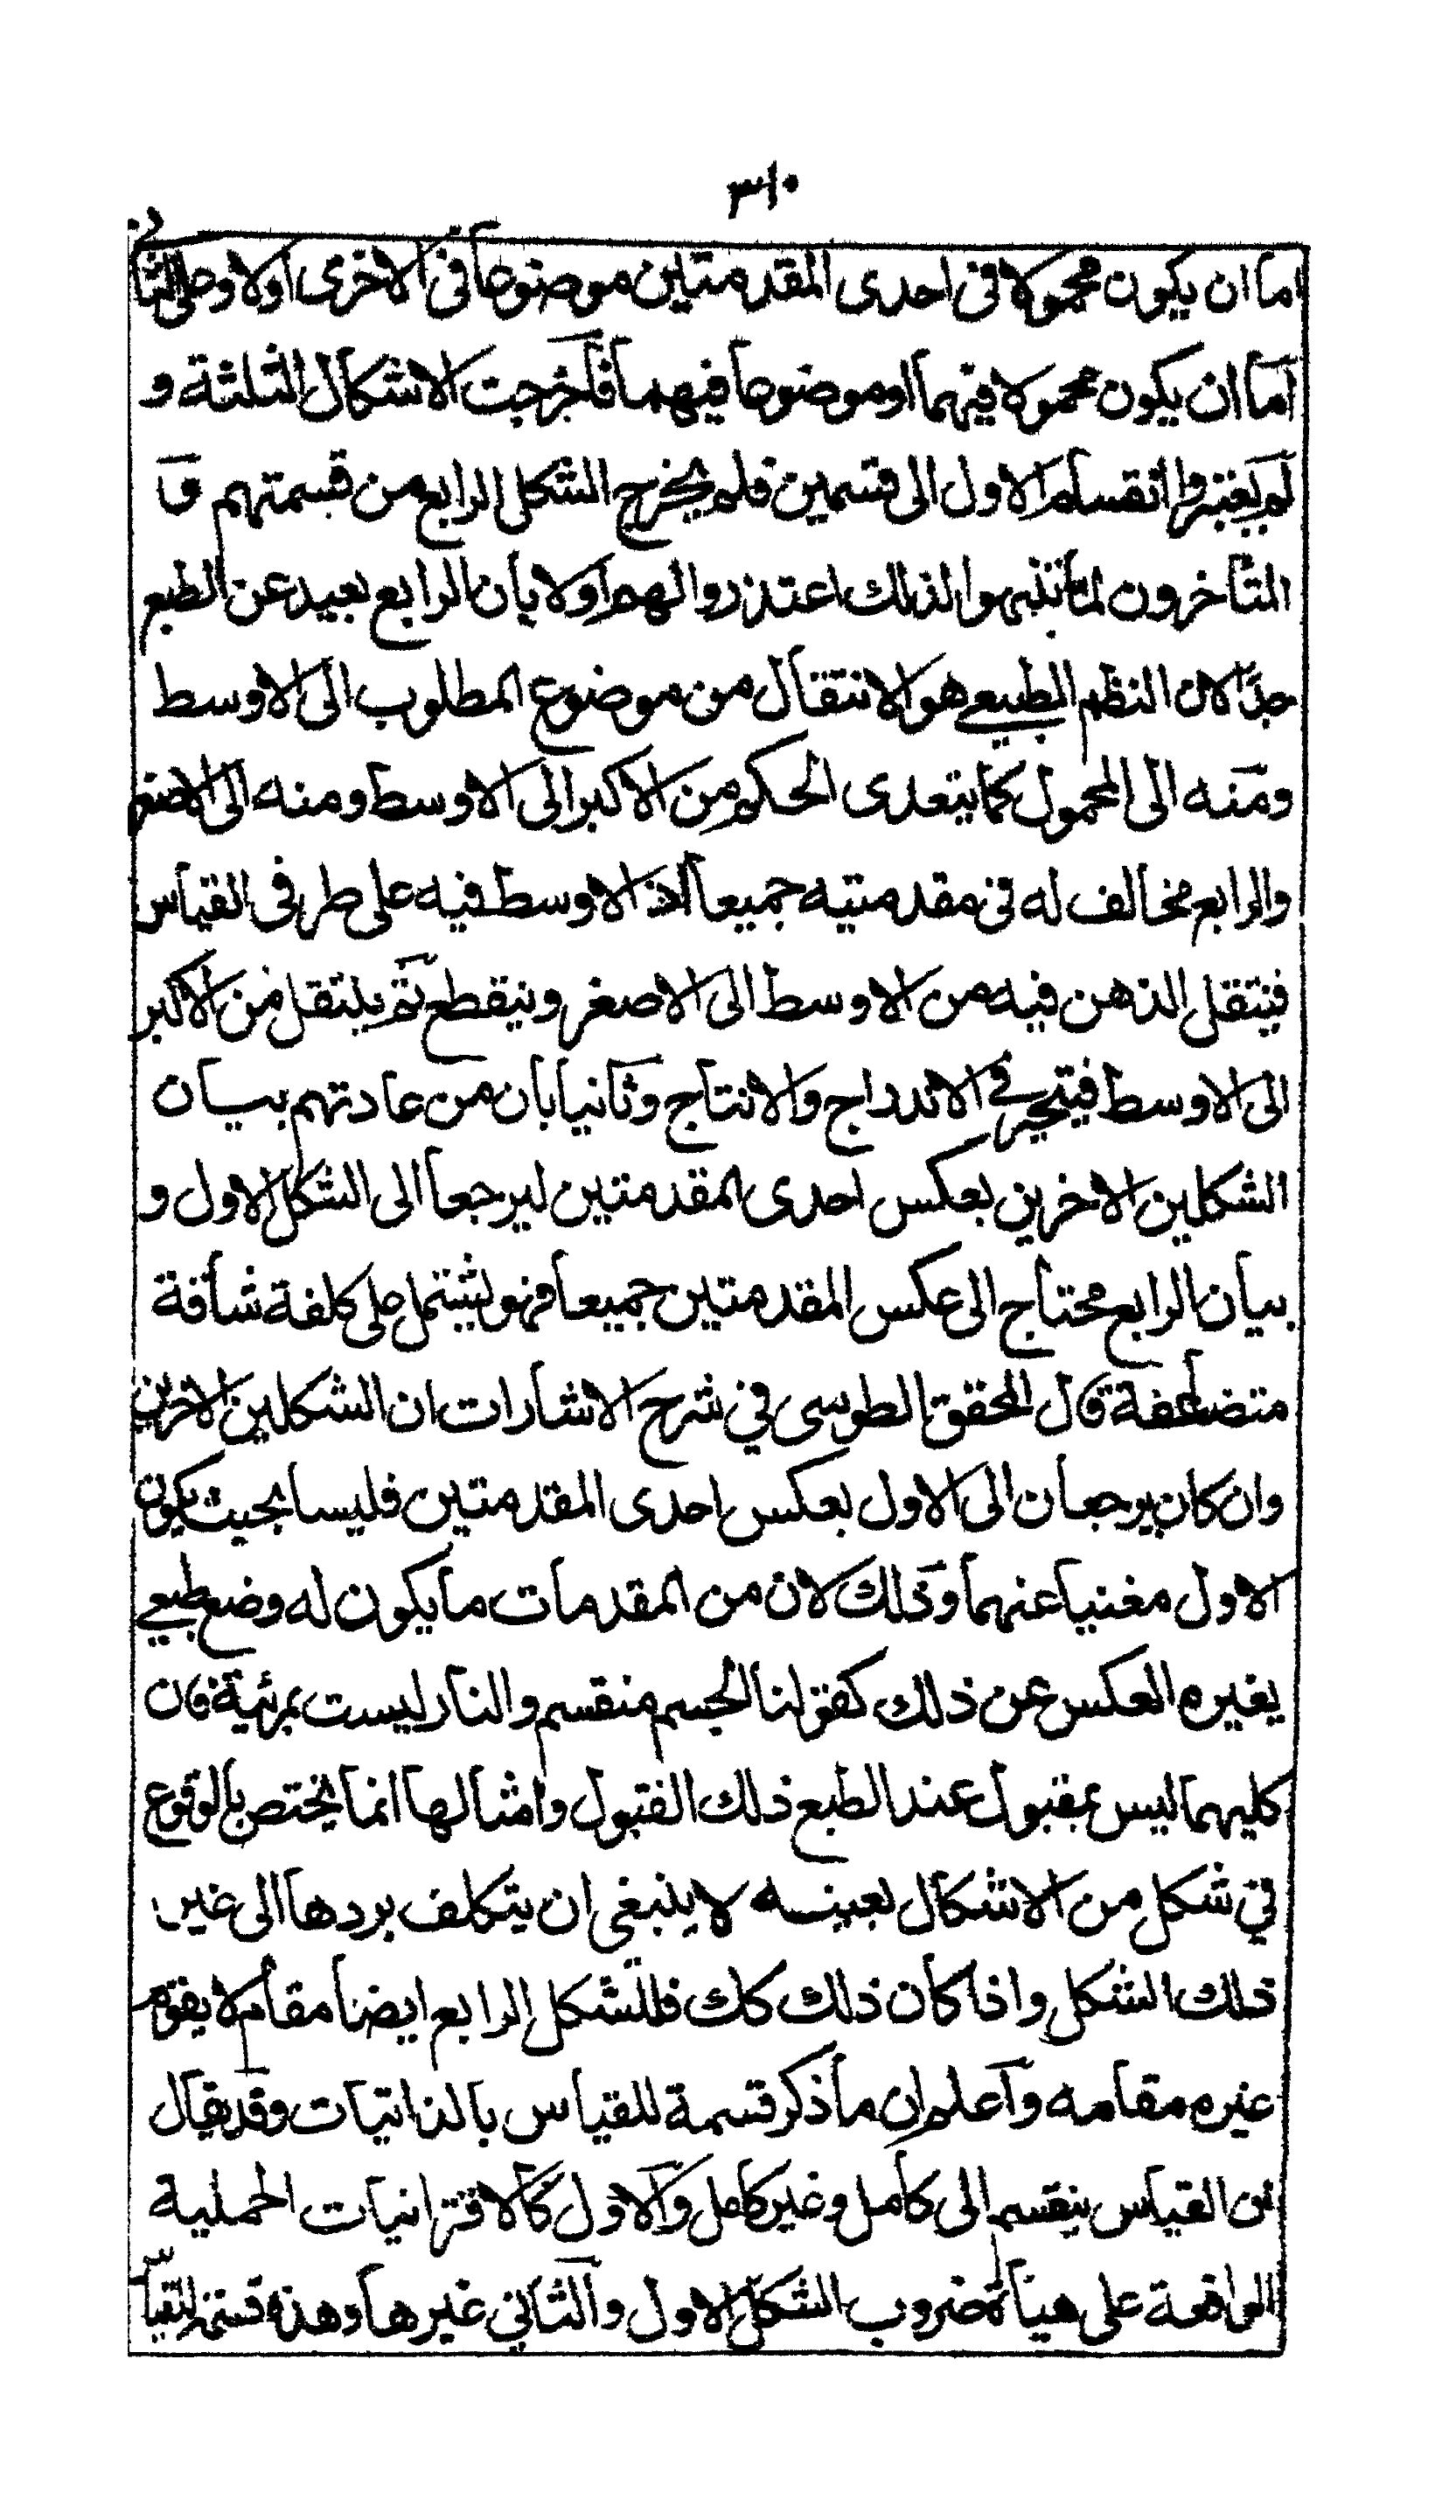 ٣١٠
اما ان يكون محمولا فى احدى المقدمتين موضوعا فى الاخرى اولا وعلى الثانى
اما ان يكون محمولا فيهما او موضوعا فيهما فاخرجت الاشكال الثلثة و
لم يعتبروا انقسام الاول الى قسمين فلم يخرج الشكل الرابع من قسمتهم و
المتأخرون لما تنبهوا لذلك اعتذروا لهم اولا بان الرابع بعيد عن الطبع
جدا لان النظم الطبيعي هو الانتقال من موضوع المطلوب الى الاوسط
ومنه الى المحمول كما يتعدى الحكم من الاكبر الى الاوسط ومنه الى الاصغر
والرابع مخالف له فى مقدمتيه جميعا اذ الاوسط فيه على طرفى القياس
فينتقل الذهن فيه من الاوسط الى الاصغر وينقطع ثم ينتقل من الاكبر
الى الاوسط فيتحير في الاندراج والانتاج وثانيا بان من عادتهم بيان
الشكلين الاخرين بعكس احدى المقدمتين ليرجعا الى الشكل الاول و
بيان الرابع محتاج الى عكس المقدمتين جميعا فهو يشتمل على كلفة شاقة
متضاعفة قال المحقق الطوسى في شرح الاشارات ان الشكلين الاخرين
وان كان يرجعان الى الاول بعكس احدى المقدمتين فليسا بحيث يكون
الاول مغنيا عنهما وذلك لان من المقدمات ما يكون له وضع طبيعي
يغيره العكس عن ذلك كقولنا الجسم منقسم والنار ليست بمرئية فان
كليهما ليس بمقبول عند الطبع ذلك القبول وامثالها انما يختص بالوقوع
في شكل من الاشكال بعينه لا ينبغى ان يتكلف بردها الى غير
ذلك الشكل واذا كان ذلك كك فللشكل الرابع ايضا مقام لا يقوم
غيره مقامه واعلم ان ما ذكر قسمة للقياس بالذاتيات وقد يقال
ان القياس ينقسم الى كامل وغير كامل والاول كالاقترانيات الحملية
الواقعة على هيأة ضروب الشكل الاول والثاني غيرها وهذه قسمة للقياس